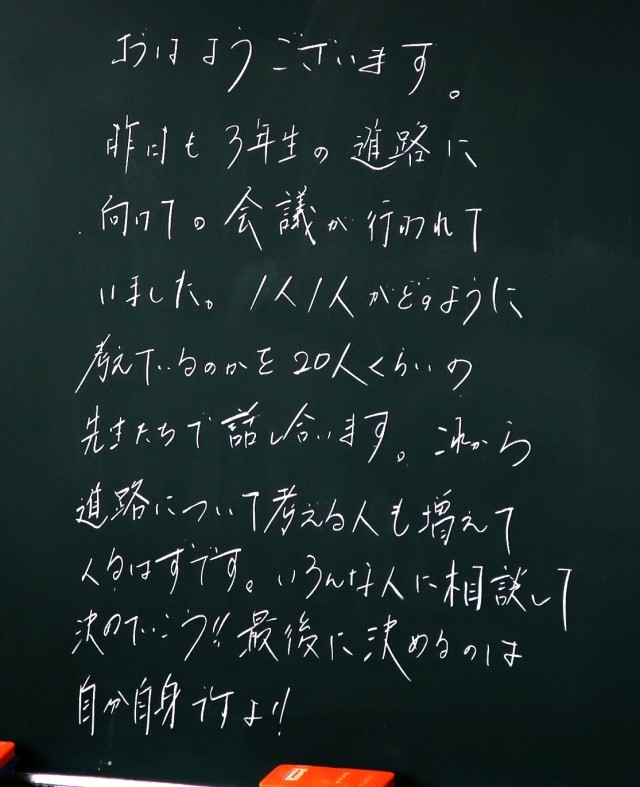 おはようございます。
昨日も3年生の進路に
向けての会議が行われて
いました。1人1人がどのように
考えているのかを20人くらいの
先生たちで話し合います。これから
進路について考える人も増えて
くるはずです。いろんな人に相談して
決めていこう!!最後に決めるのは
自分自身ですよ!!